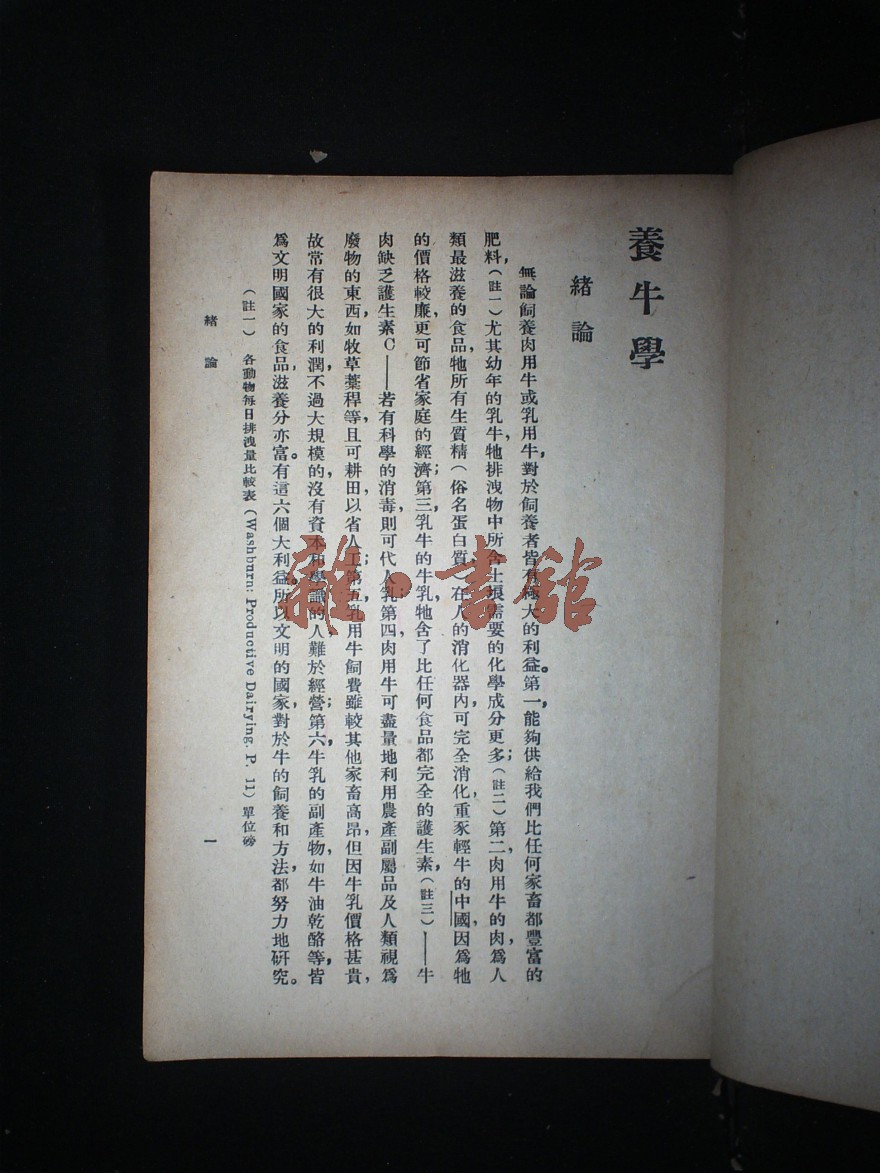 養牛學
緒論
無論飼養肉用牛或乳用牛,對於飼養者皆有極大的利益。第一,能夠供給我們比任何家畜都豐富的
肥料,(註一)尤其幼年的乳牛,牠排洩物中所含土壤需要的化學成分更多;(註二)第二,肉用牛的肉為人
類最滋養的食品,牠所有生質精(俗名蛋白質)在人的消化器內,可完全消化,重豕輕牛的中國,因為牠
的價格較廉,更可節省家庭的經濟;第三,乳牛的牛乳,牠含了比任何食品都完全的護生素,(註三)——牛
肉缺乏護生素C——若有科學的消毒,則可代人乳;第四,肉用牛可盡量地利用農產副屬品及人類視為
廢物的東西,如牧草藁稈等,且可耕田,以省人工;第五,乳用牛飼費雖較其他家畜高昂,但因牛乳價格甚貴,
故常有很大的利潤,不過大規模的,沒有資本和學識的人,難於經營;第六,牛乳的副產物,如牛油乾酪等,皆
為文明國家的食品,滋養分亦富。有這六個大利益,所以文明的國家,對於牛的飼養和方法,都努力地研究。
(註一) 各動物每日排洩量比較表(Washburn: Productive Dairying, P. 11)單位磅
緒論
一
雜·書館